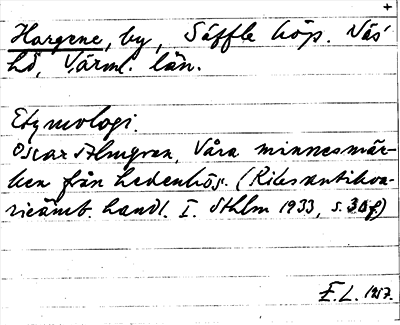 +
Hargene, by, Säffle köp. Näs
hd, Värml. län.
Etymologi.
Oscar Almgren, Våra minnesmär-
ken från hedenhös. (Riksantikva-
rieämb. handl. I. Sthlm 1933, s.
E. L. 1957.